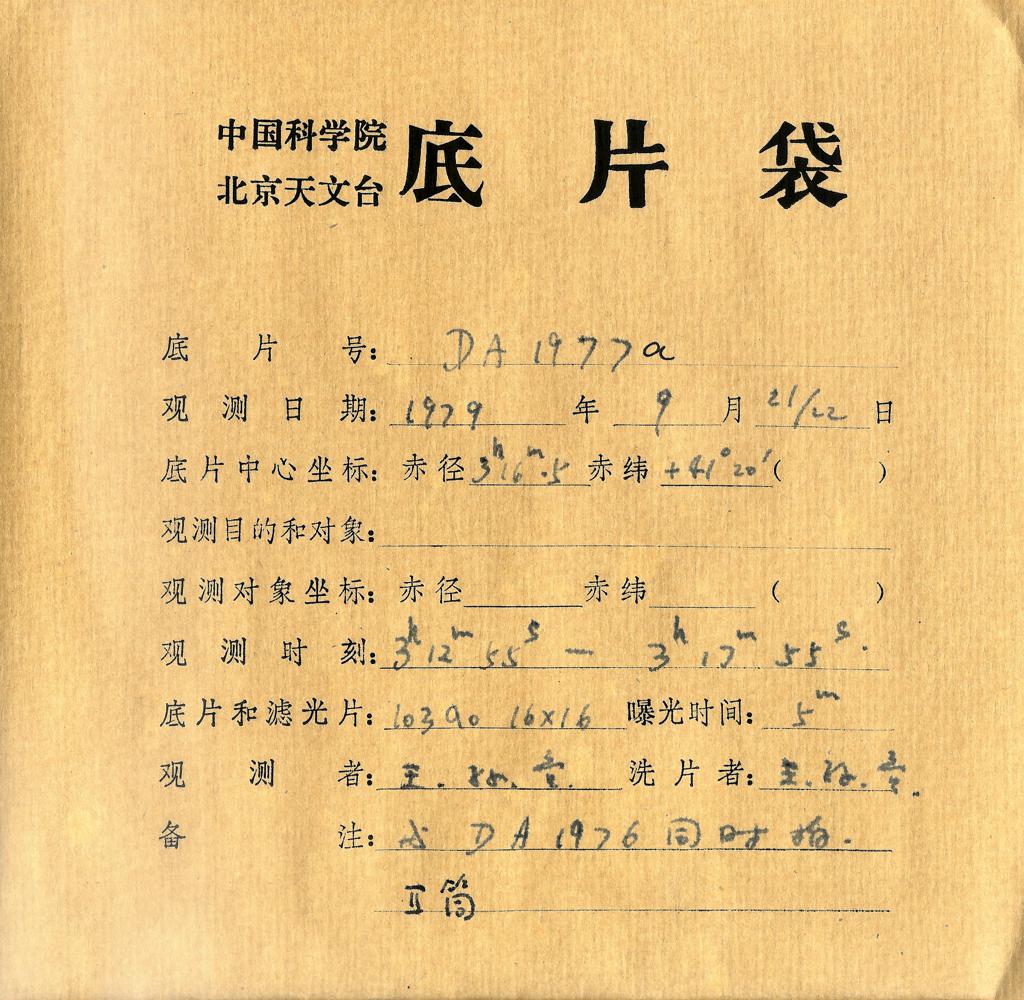 中国科学院
北京天文台
底片袋
底片号: DA 1977a
观测日期: 1979年 9月 21/22日
底片中心坐标: 赤径 3ʰ16ᵐ.5 赤纬 +41°20′( )
观测目的和对象:
观测对象坐标: 赤径 赤纬 ( )
观测时刻: 3ʰ12ᵐ55ˢ — 3ʰ17ᵐ55ˢ.
底片和滤光片: 103a0 16×16 曝光时间: 5ᵐ
观测者: 王. 洗片者: 王.
备注: DA 1976 同时拍.
II筒